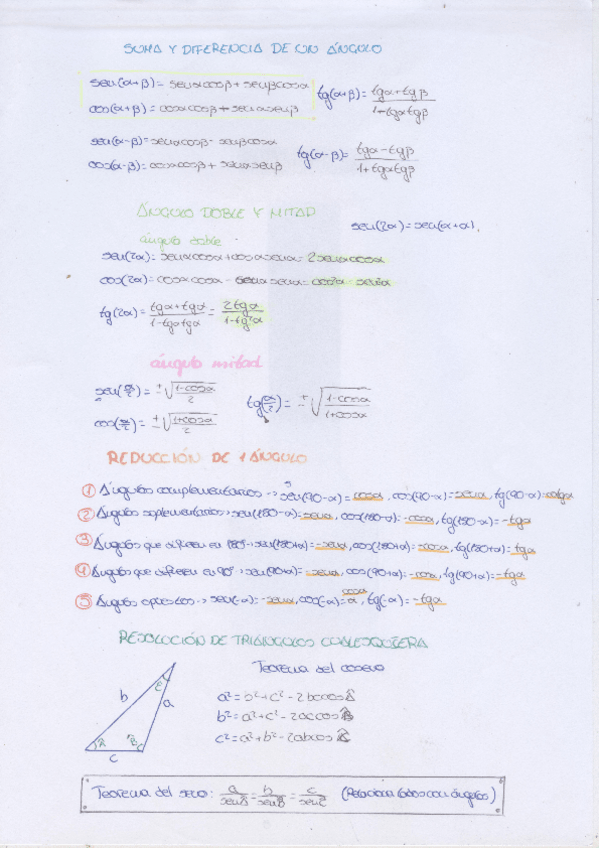 SUMA Y DIFERENCIA DE UN ÁNGULO
sen(α+β)= senαcosβ + senβcosα
cos(α+β)= cosαcosβ + senαsenβ
tg(α+β)= (tgα+tgβ)/(1-tgαtgβ)
sen(α-β)= senαcosβ - senβcosα
cos(α-β)= cosαcosβ + senαsenβ
tg(α-β)= (tgα-tgβ)/(1+tgαtgβ)
ÁNGULO DOBLE Y MITAD
sen(2α)=sen(α+α).
ángulo doble
sen(2α)= senαcosα+cosαsenα= 2senαcosα
cos(2α)= cosαcosα - senαsenα= cos²α - sen²α
tg(2α)= (tgα+tgα)/(1-tgαtgα) = 2tgα/(1-tg²α)
ángulo mitad
sen(α/2)= ±√((1-cosα)/2)
tg(α/2)= ±√((1-cosα)/(1+cosα))
cos(α/2)= ±√((1+cosα)/2)
REDUCCIÓN DE 1 ÁNGULO
① Ángulos complementarios -> sen(90-α)= cosα, cos(90-α)= senα, tg(90-α)= cotgα
② Ángulos suplementarios -> sen(180-α)= senα, cos(180-α)= -cosα, tg(180-α)= -tgα
③ Ángulos que difieren en 180º -> sen(180+α)= -senα, cos(180+α)= -cosα, tg(180+α)= tgα
④ Ángulos que difieren en 90º -> sen(90+α)= -senα, cos(90+α)= -cosα, tg(90+α)= -tgα
⑤ Ángulos opuestos -> sen(-α)= -senα, cos(-α)= cosα, tg(-α)= -tgα
RESOLUCIÓN DE TRIÁNGULOS CUALESQUIERA
Teorema del coseno
a²= b²+c²-2bccosÂ
b²= a²+c²-2accosB̂
c²= a²+b²-2abcosĈ
b
a
c
A
B
C
Teorema del seno: a/senÂ = b/senB̂ = c/senĈ (Relaciona lados con ángulos)